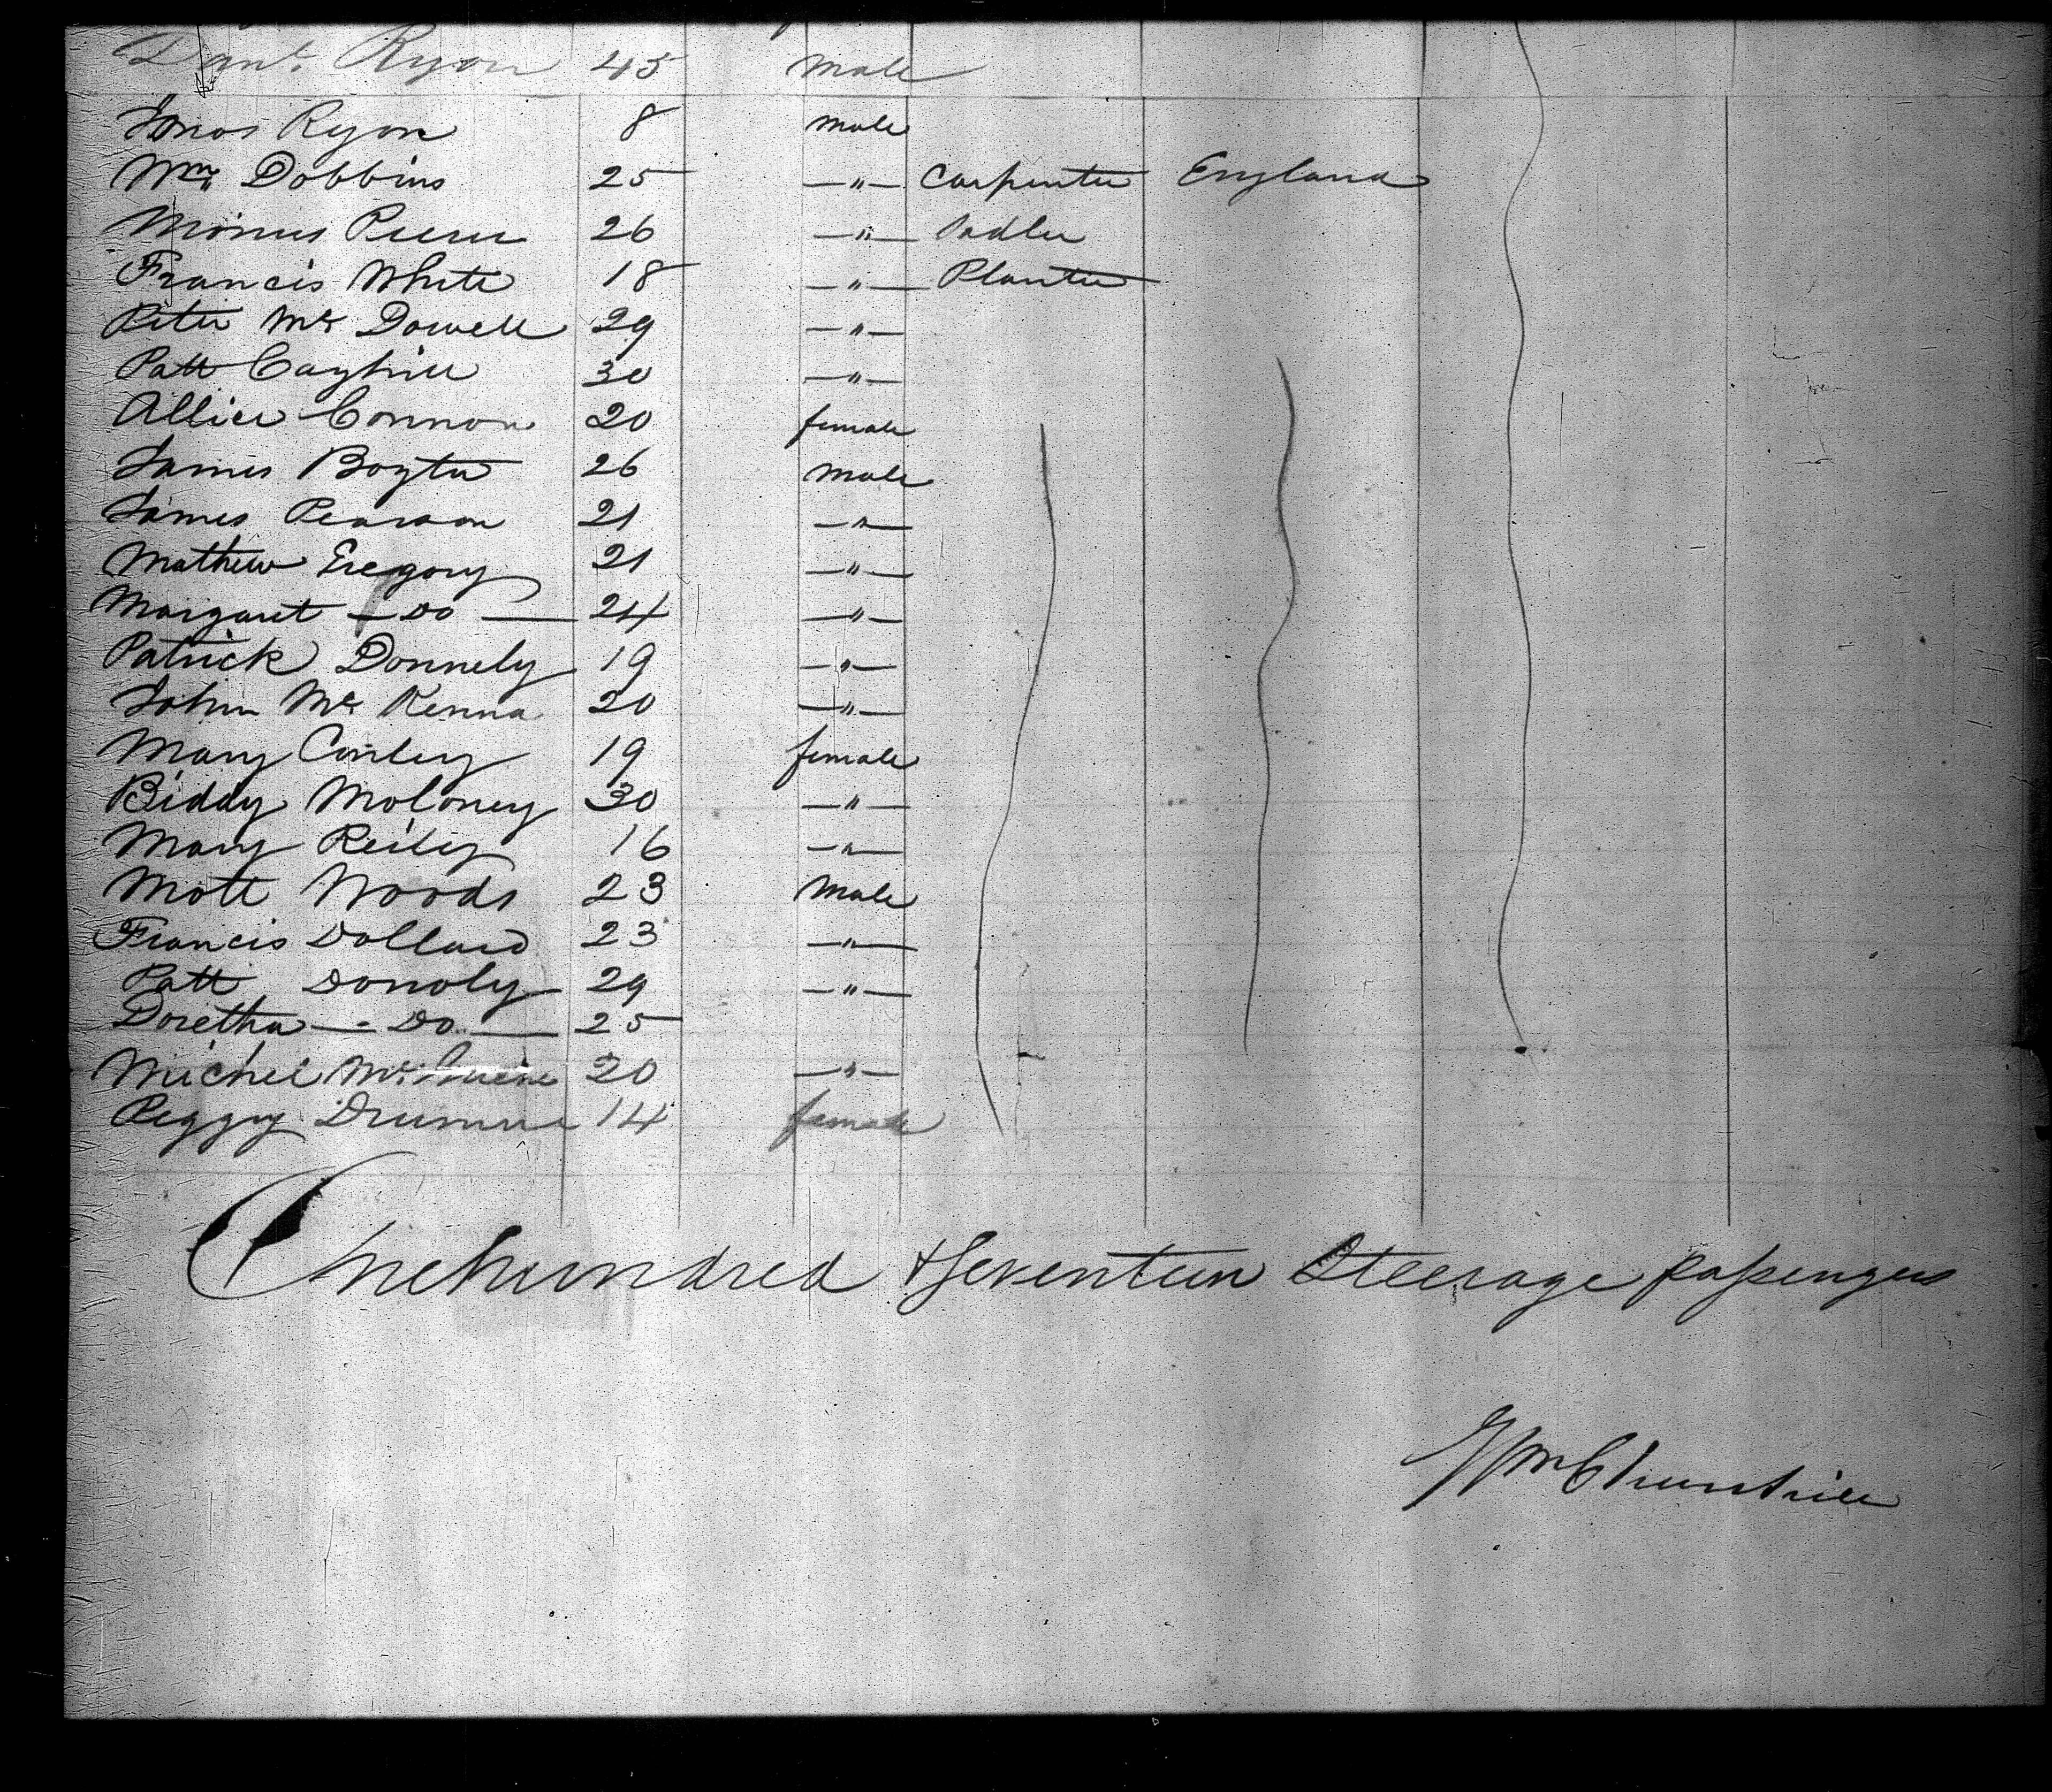 Danl. Ryon 45 male
Jonas Ryon 8 male
Wm Dobbins 25 —"— Carpenter England
26 —"— Sadler
Francis White 18 —"— Planter
Peter Mc Dowell 29 —"—
Patt 30 —"—
Allice Connon 20 female
James 26 Male
James Pearson 21 —"—
Mathew Gregory 21 —"—
Margaret — Do — 24 —"—
Patrick Donnely 19 —"—
John Mc Kenna 20 —"—
Mary Conley 19 female
Biddy Moloney 30 —"—
Mary Reiley 16 —"—
Matt Woods 23 Male
Francis Dollard 23 —"—
Patt Donoly 29 —"—
Doretha — Do — 25
Michel 20 —"—
Peggy 14 female
One hundred & Seventeen Steerage passengers